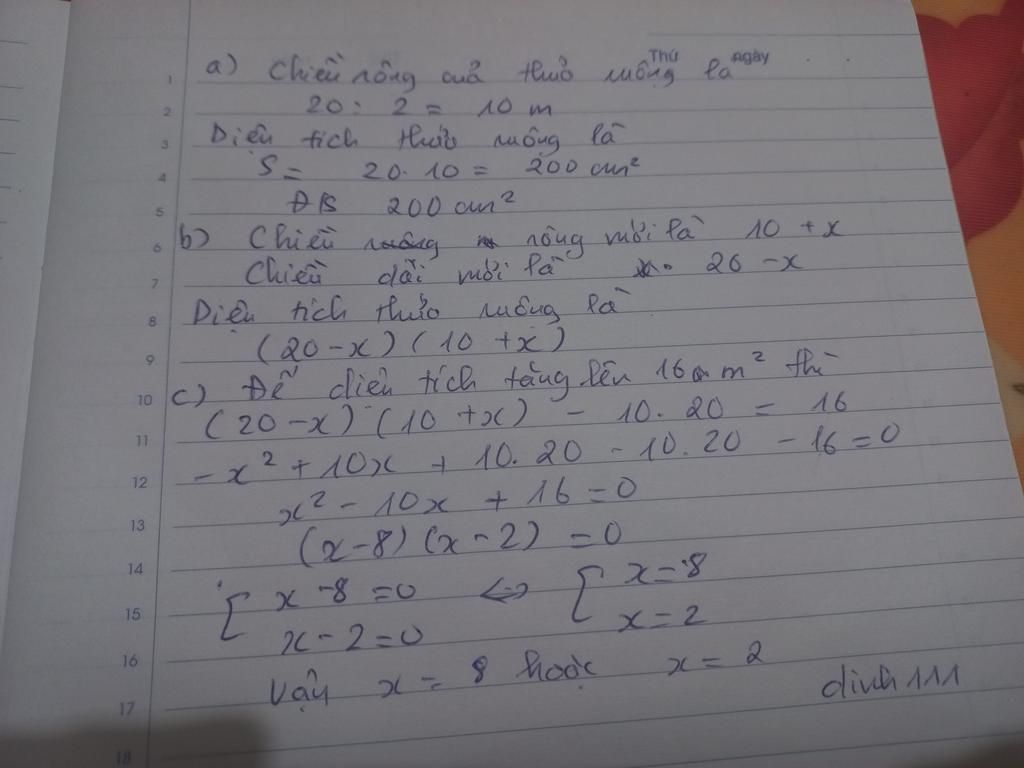 Thứ ngày
1 a) Chiều rông cuả thuở ruông là
2 20 : 2 = 10 m
3 Diện tích thuở ruông là
4 S = 20. 10 = 200 cm²
5 ĐS 200 cm²
6 b) Chiều rông mới là 10 + x
7 Chiều dài mới là 20 - x
8 Diện tích thuở ruông là
9 (20 - x) (10 + x)
10 c) Để diên tích tăng lên 16 m² thì
11 (20 - x) (10 + x) - 10. 20 = 16
12 - x² + 10x + 10. 20 - 10. 20 - 16 = 0
13 x² - 10x + 16 = 0
14 (x - 8) (x - 2) = 0
[ x - 8 = 0 <=> [ x = 8
15 x - 2 = 0 x = 2
16 Vậy x = 8 hoặc x = 2
17 dinh111
18